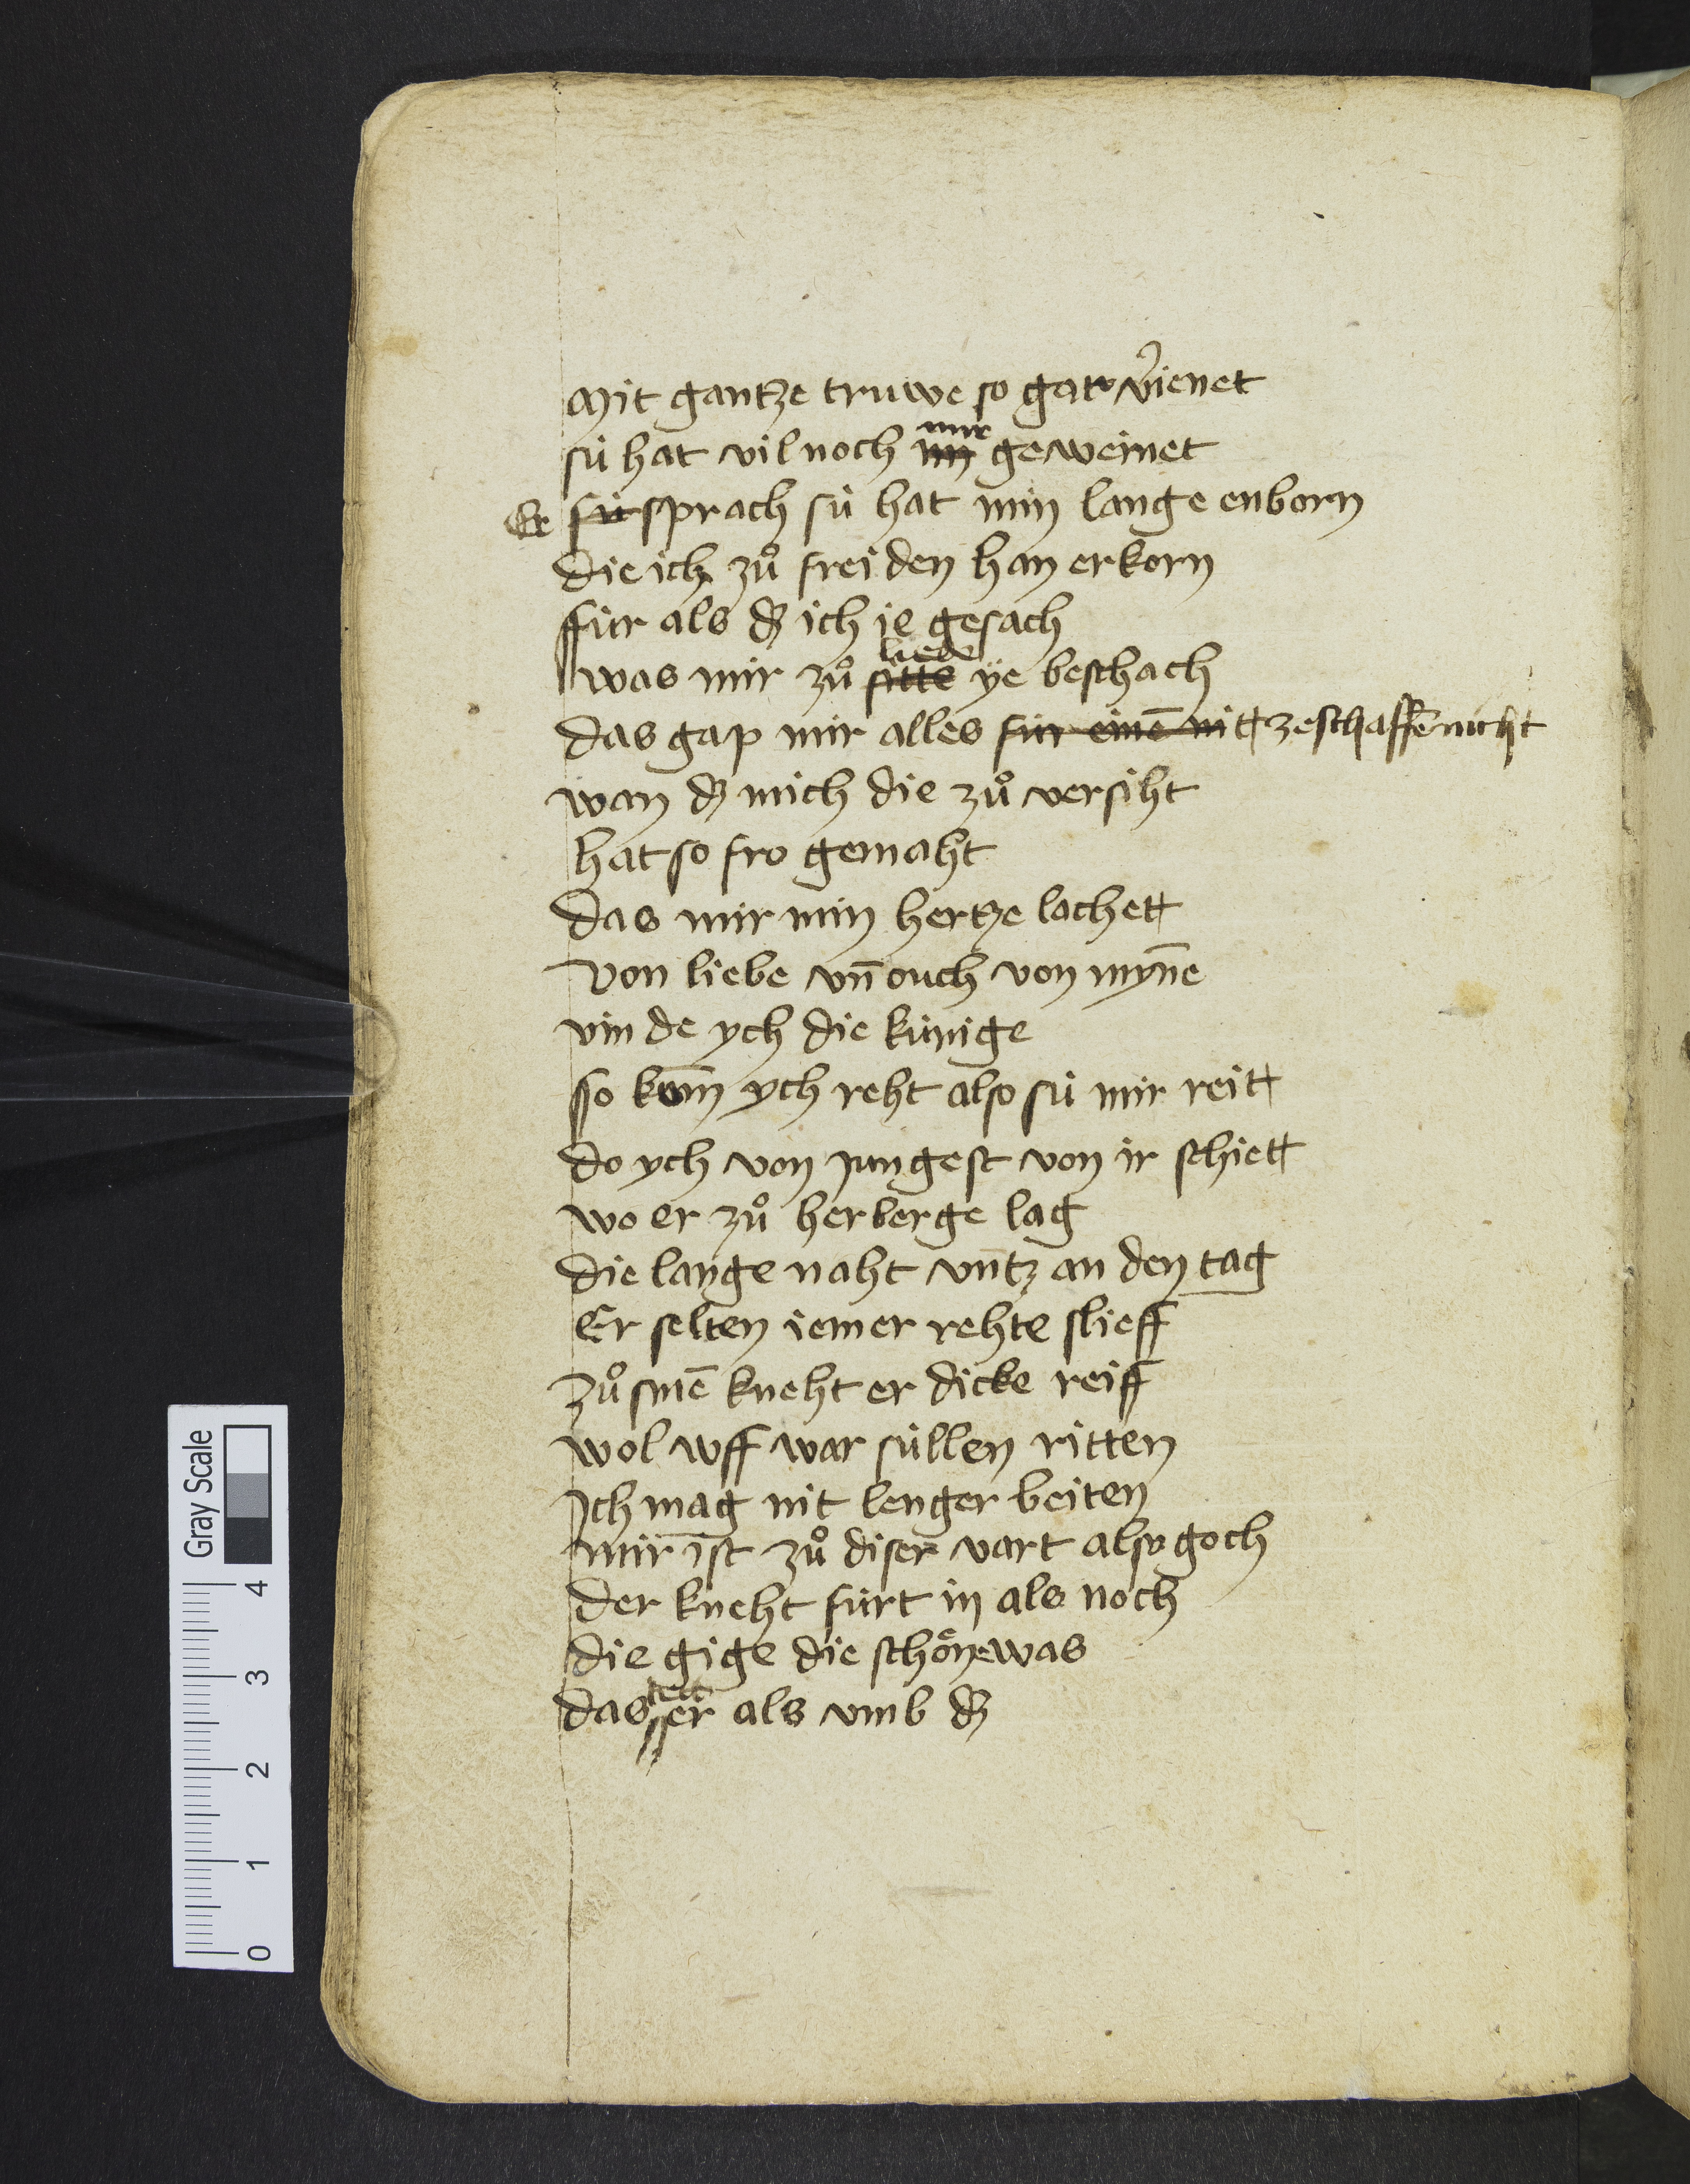 Mit gantze truwe so gar v̾ienet
sú hat vil noch mir geweinet
Er sprach sú hat min lange enborn
die ich zů freiden han erkorn
ffúr als dz ich ie gesach
was mir zů liede ÿe beschach
das gap mir alles fúr einē nitt zeschaffē nicht
wan dz mich die zů versiht
hat so fro gemaht
das mir min hertze lachett
von liebe vn̄ ouch von mȳne
vin de ych die kúnige
sso kom̄ ych reht also sú mir reitt
do ych von jungest von ir schiett
wo er zů herberge lag
die lange naht vntz an den tag
Er selten iemer rehte slieff
zů sinē kneht er dicke reiff
wol wff war súllen ritten
Ich mag nit lenger beiten
mir ist zů diser vart also goch
der kneht fúrt in als noch
die gige die schoͤne was
das tett er als vmb dz
Gray Scale
4
3
2
1
0